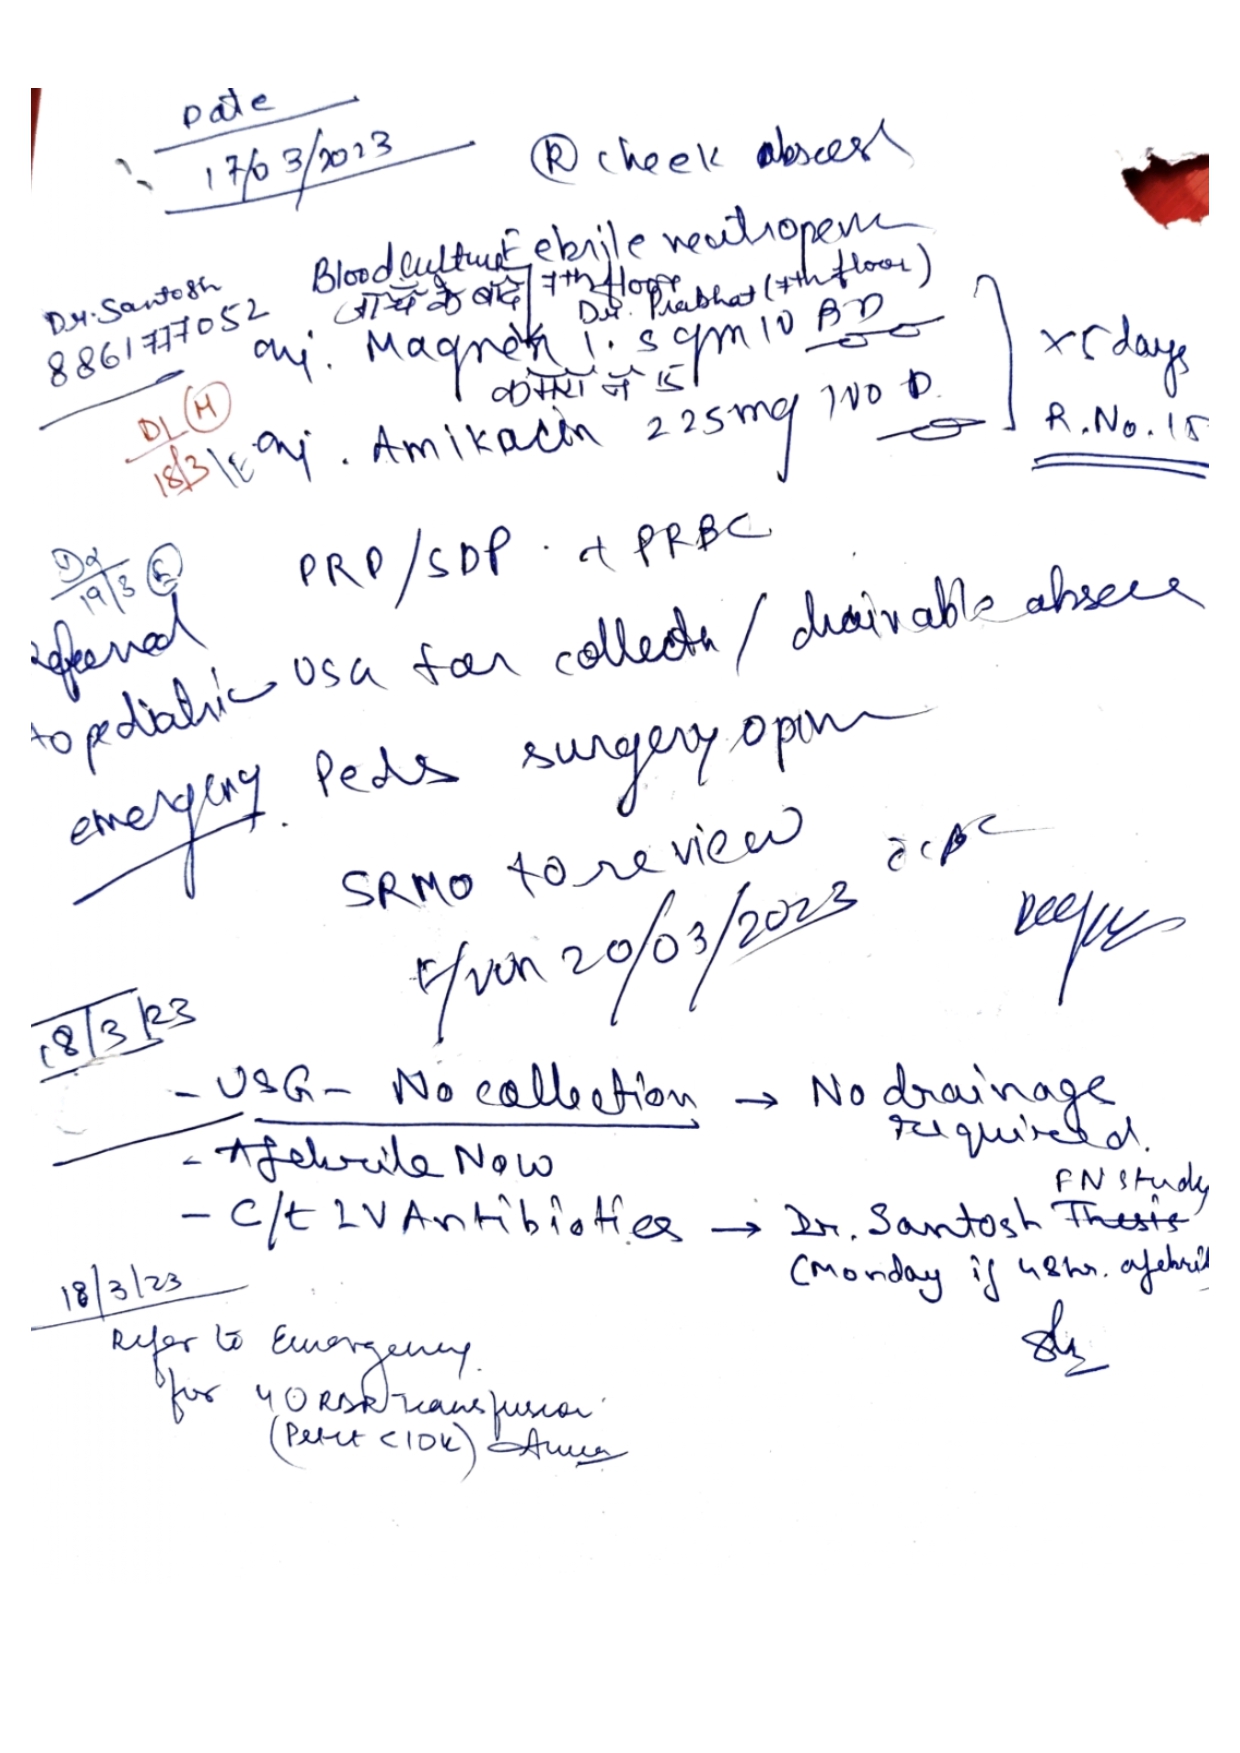 Date
17/03/2023
Ⓡ cheek abscess
Febrile neutropenia
Blood culture
7th floor
जाँच के बाद
Dr. Prabhat (7th floor)
Dr. Santosh
8861777052
Inj. Magnex 1.5 gm IV BD
कमरा नं 15
x 5 days
D1 Ⓜ
18/3 / E
Inj. Amikacin 225mg IV OD
R.No. 15
PRP/SDP + PRBC
D2
19/3 Ⓔ
referred
to pediatric
emergency.
USG for collectn / drainable abscess
Peds surgery opin
SRMO to review
F/u on 20/03/2023 c CBC
18/3/23
- USG - No collection → No drainage
required.
- Afebrile Now
- C/t IV Antibiotics → Dr. Santosh Thesis
FN study
(Monday if 48hr. afebrile
18/3/23
Refer to Emergency
for 4 U RDP Transfusion
(Petit <10K)